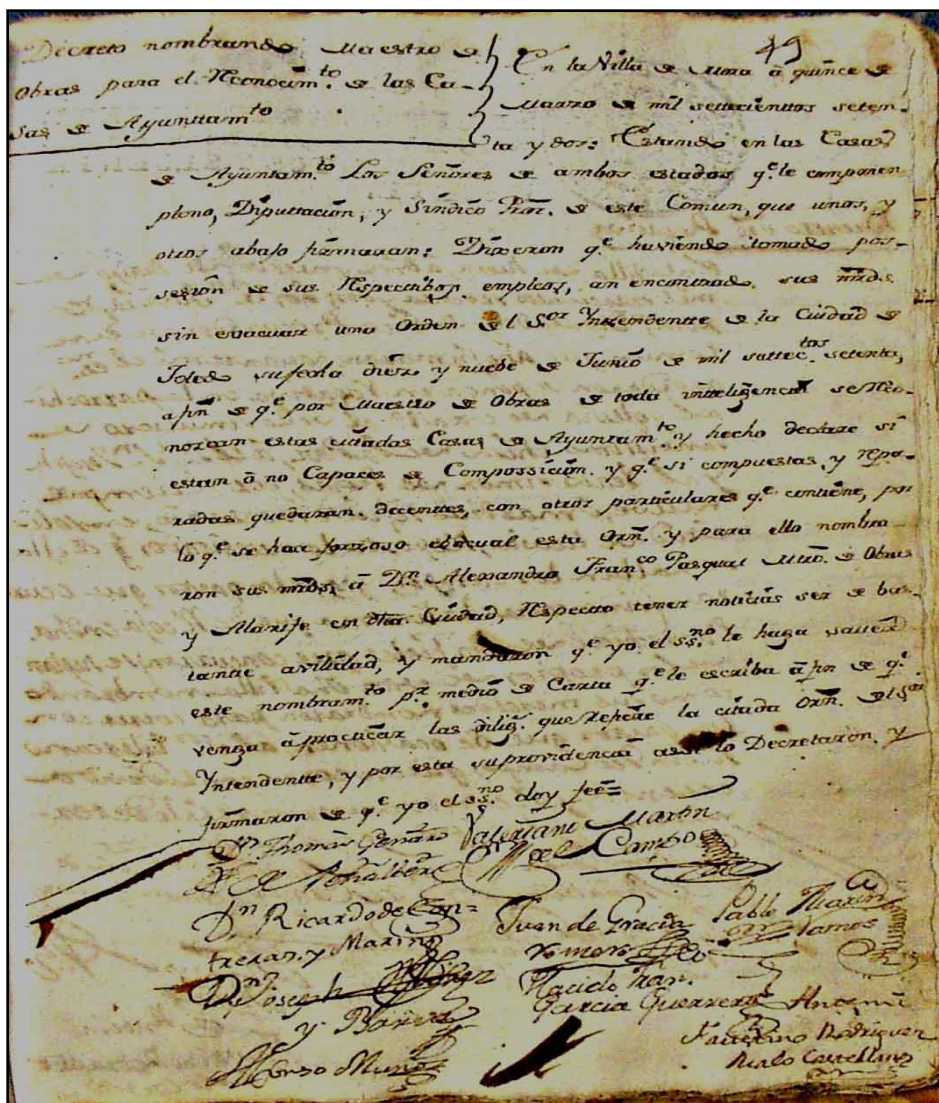 49
Decreto nombrando Maestro de
Obras para el Reconocim.to de las Ca-
sas de Ayunttam.to
En la Villa de Mora â quince de
Marzo de mil settecienttos seten-
ta y dos: Estando en las Casas
de Ayuntam.to Los Señores de ambos estados q.e le componen
pleno, Diputtación, y Síndico Pror. de este Comun, que unos, y
otros abajo firmaran: Dixeron q.e haviendo tomado pos-
sesión de sus Respectibos empleos, an encontrado sus mrds.
sin evacuar una Orden del S.or Yntendentte de la Ciudad de
Toledo su fecha diez y nuebe de Junio de mil settec.tos setenta,
a fin de q.e por Maestro de Obras de toda intteligencia se Reco-
nozcan estas cittadas Casas de Ayuntam.to y hecho declare si
estan ô no Capaces de Compossicion. y q.e si compuestas, y repa-
radas quedaran decenttes, con otros particulares q.e contiene, por
lo q.e se hace forzoso ebacual esta Orn. y para ello nombra-
ron sus mrds, â D.n Alexandro Fran.co Pasqual Mtro. de Obras
y Alarife en dha. Ciudad, Respecto tener noticias ser de bas-
tante avilidad, y mandaron q.e yo el ss.no le haga saver
este nombram.to p.r medio de Carta q.e le escriba â fin de q.e
venga â practicar las dilig.s que refiere la cittada Orn. del S.or
Yntendentte, y por esta su providencia assi lo Decretaron, y
firmaron de q.e yo el ss.no doy fee=
D.n Thomas Genaro
de Peñalber
Valeriano Martin
del Campo
D.n Ricardo de Con=
treras, y Marin
Juan de Gracia
romero
Pablo Marin
Ramos
D.n Joseph
y Barba
Placido Fran.
Garcia Guerrero
Alfonso Muñoz
Antemi
Faustino Rodriguez
Rualo Castellanos